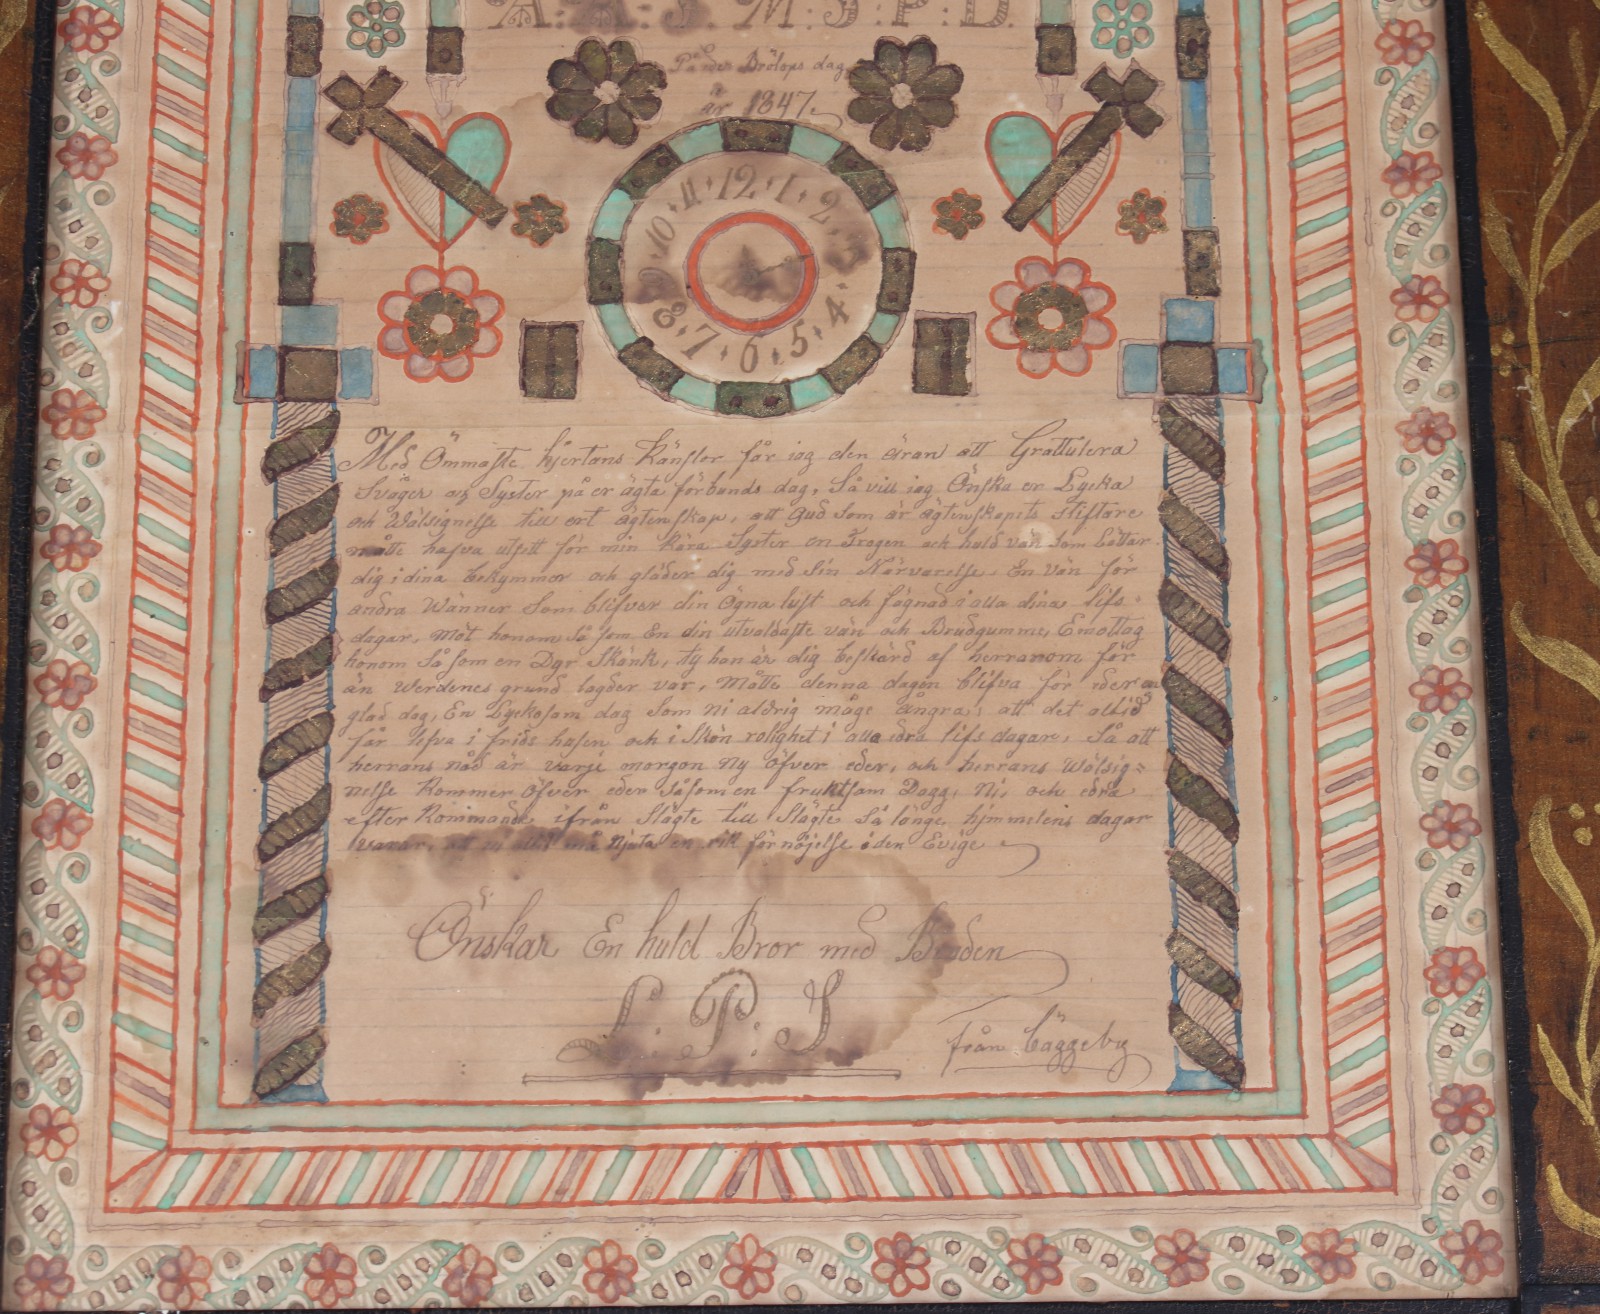 A: A: S. M: S: P: D.
På eder Brölops dag
år 1847.
12 1 2 3 4 5 6 7 8 9 10 11
Med Ömmaste hjertans Känslor får iag den äran att Grattulera
Svåger og Syster på er ägta förbunds dag, Så vill iag Önska er Lycka
och Wälsignelse till ert ägtenskap, att Gud som är ägtenskapets Stiftare
måtte hafva utsett för min kära Syster en Trogen och huld vän som Lättar
dig i dina bekymmer och gläder dig med sin Närvarelse, En vän för
andra Wänner Som blifver din Ogna lust och fägnad i alla dina lifs
dagar, Möt honom Så som En din utvaldaste vän och Brudgumme, Emottag
honom Så som en Dyr Skänk, ty han är dig beskärd af herranom för
än Werdenes grund lagder var, Måtte denna dagen blifva för eder en
glad dag, En Lyckosam dag Som ni aldrig måge ångra, att det alltid
får lefva i frids hafen och i Skön rolighet i alla edra lifs dagar, Så att
herrans nåd är varje morgon ny öfver eder, och herrans Wälsig=
nelse Kommer öfver eder såsom en fruktsam Dagg, Ni, och edra
efter Kommande ifrån Slägte till Slägte Så länge himmelens dagar
varar, att ni må Njuta en rik förnöjelse i den Evige
Önskar En huld Bror med Bruden
L: P: S
från Läggeby